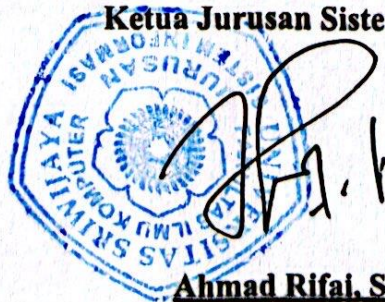 Ketua Jurusan Siste
UNIVERSITAS SRIWIJAYA
FAKULTAS ILMU KOMPUTER
JURUSAN
SISTEM INFORMASI
Ahmad Rifai, S